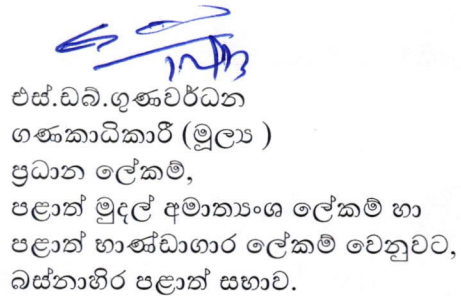 එස්.ඩබ්.ගුණවර්ධන
ගණකාධිකාරී (මූල්‍ය )
ප්‍රධාන ලේකම්,
පළාත් මුදල් අමාත්‍යංශ ලේකම් හා
පළාත් භාණ්ඩාගාර ලේකම් වෙනුවට,
බස්නාහිර පළාත් සභාව.